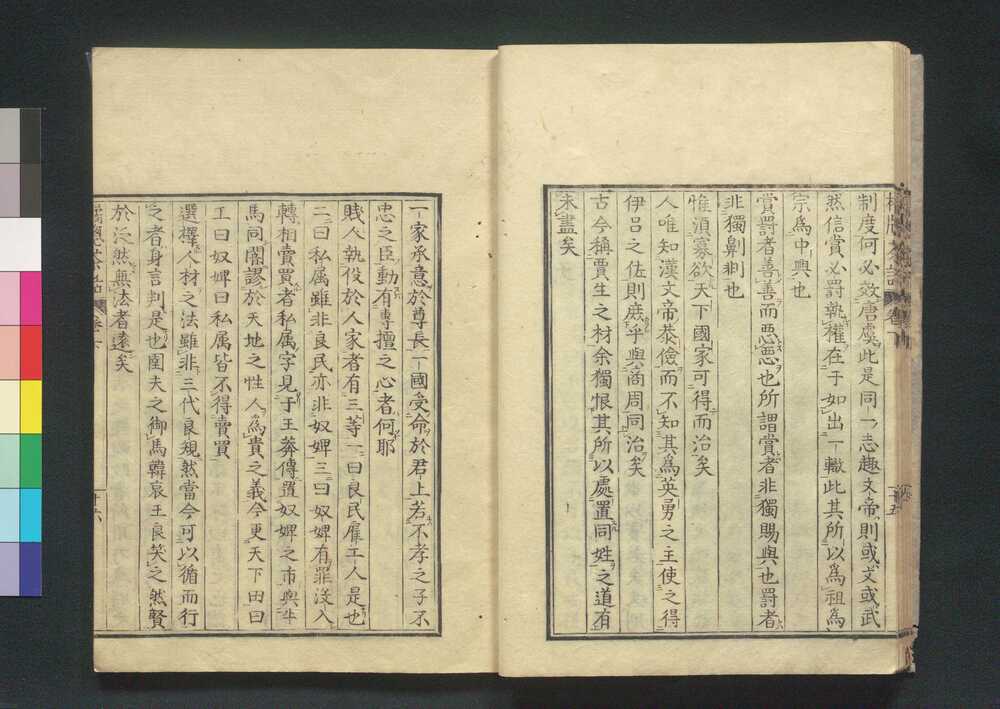 制度何必效唐虞此是同一志趣文帝則或文或武
然信賞必罰執權在于如出一轍此其所以為祖為
宗為中興也
賞罰者善善而惡惡也所謂賞者非獨賜與也罰者
非獨劓刵也
惟須寡欲天下國家可得而治矣
人唯知漢文帝恭儉而不知其為英勇之主使之得
伊呂之佐則庶乎與商周同治矣
古今稱賈生之材余獨恨其所以處置同姓之道有
未盡矣
一家承意於尊長一國受命於君上若不孝之子不
忠之臣動有專擅之心者何耶
賤人執役於人家者有三等一曰良民雇工人是也
二曰私属雖非良民亦非奴婢三曰奴婢有罪没入
轉相賣買者私属字見于王莽傳置奴婢之市與牛
馬同闌謬於天地之性人為貴之義今更天下田曰
王曰奴婢曰私属皆不得賣買
選擇人材之法雖非三代良規然當今可以循而行
之者身言判是也圉夫之御馬韓哀王良笑之然賢
於泛然無法者遠矣
十六